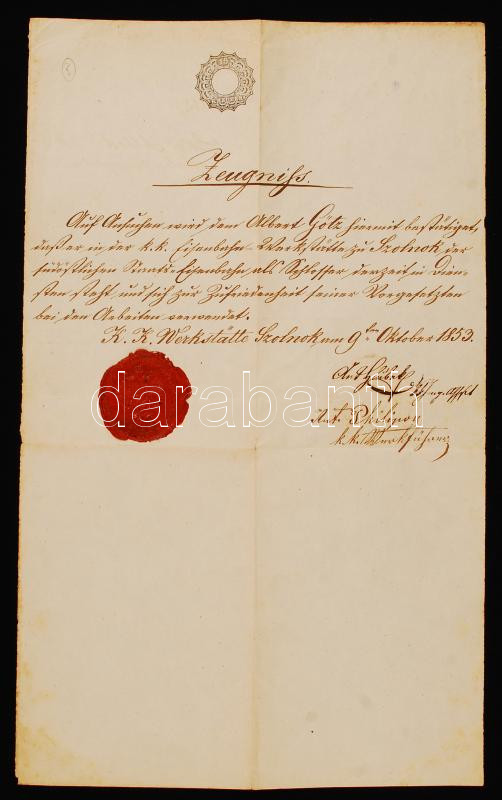 3
Zeugniß.
Auf Ansuchen wird dem Albert Götz hiermit bestätiget,
daß er in der k.k. Eisenbahn-Werkstätte zu Szolnok der
südöstlichen Staats-Eisenbahn als Schlosser derzeit in Dien-
sten steht, und sich zur Zufriedenheit seiner Vorgesetzten
bei den Arbeiten verwendet.
K. K. Werkstätte Szolnok am 9ten Oktober 1853.
darabanth
Philipp
k.k. Werkführer